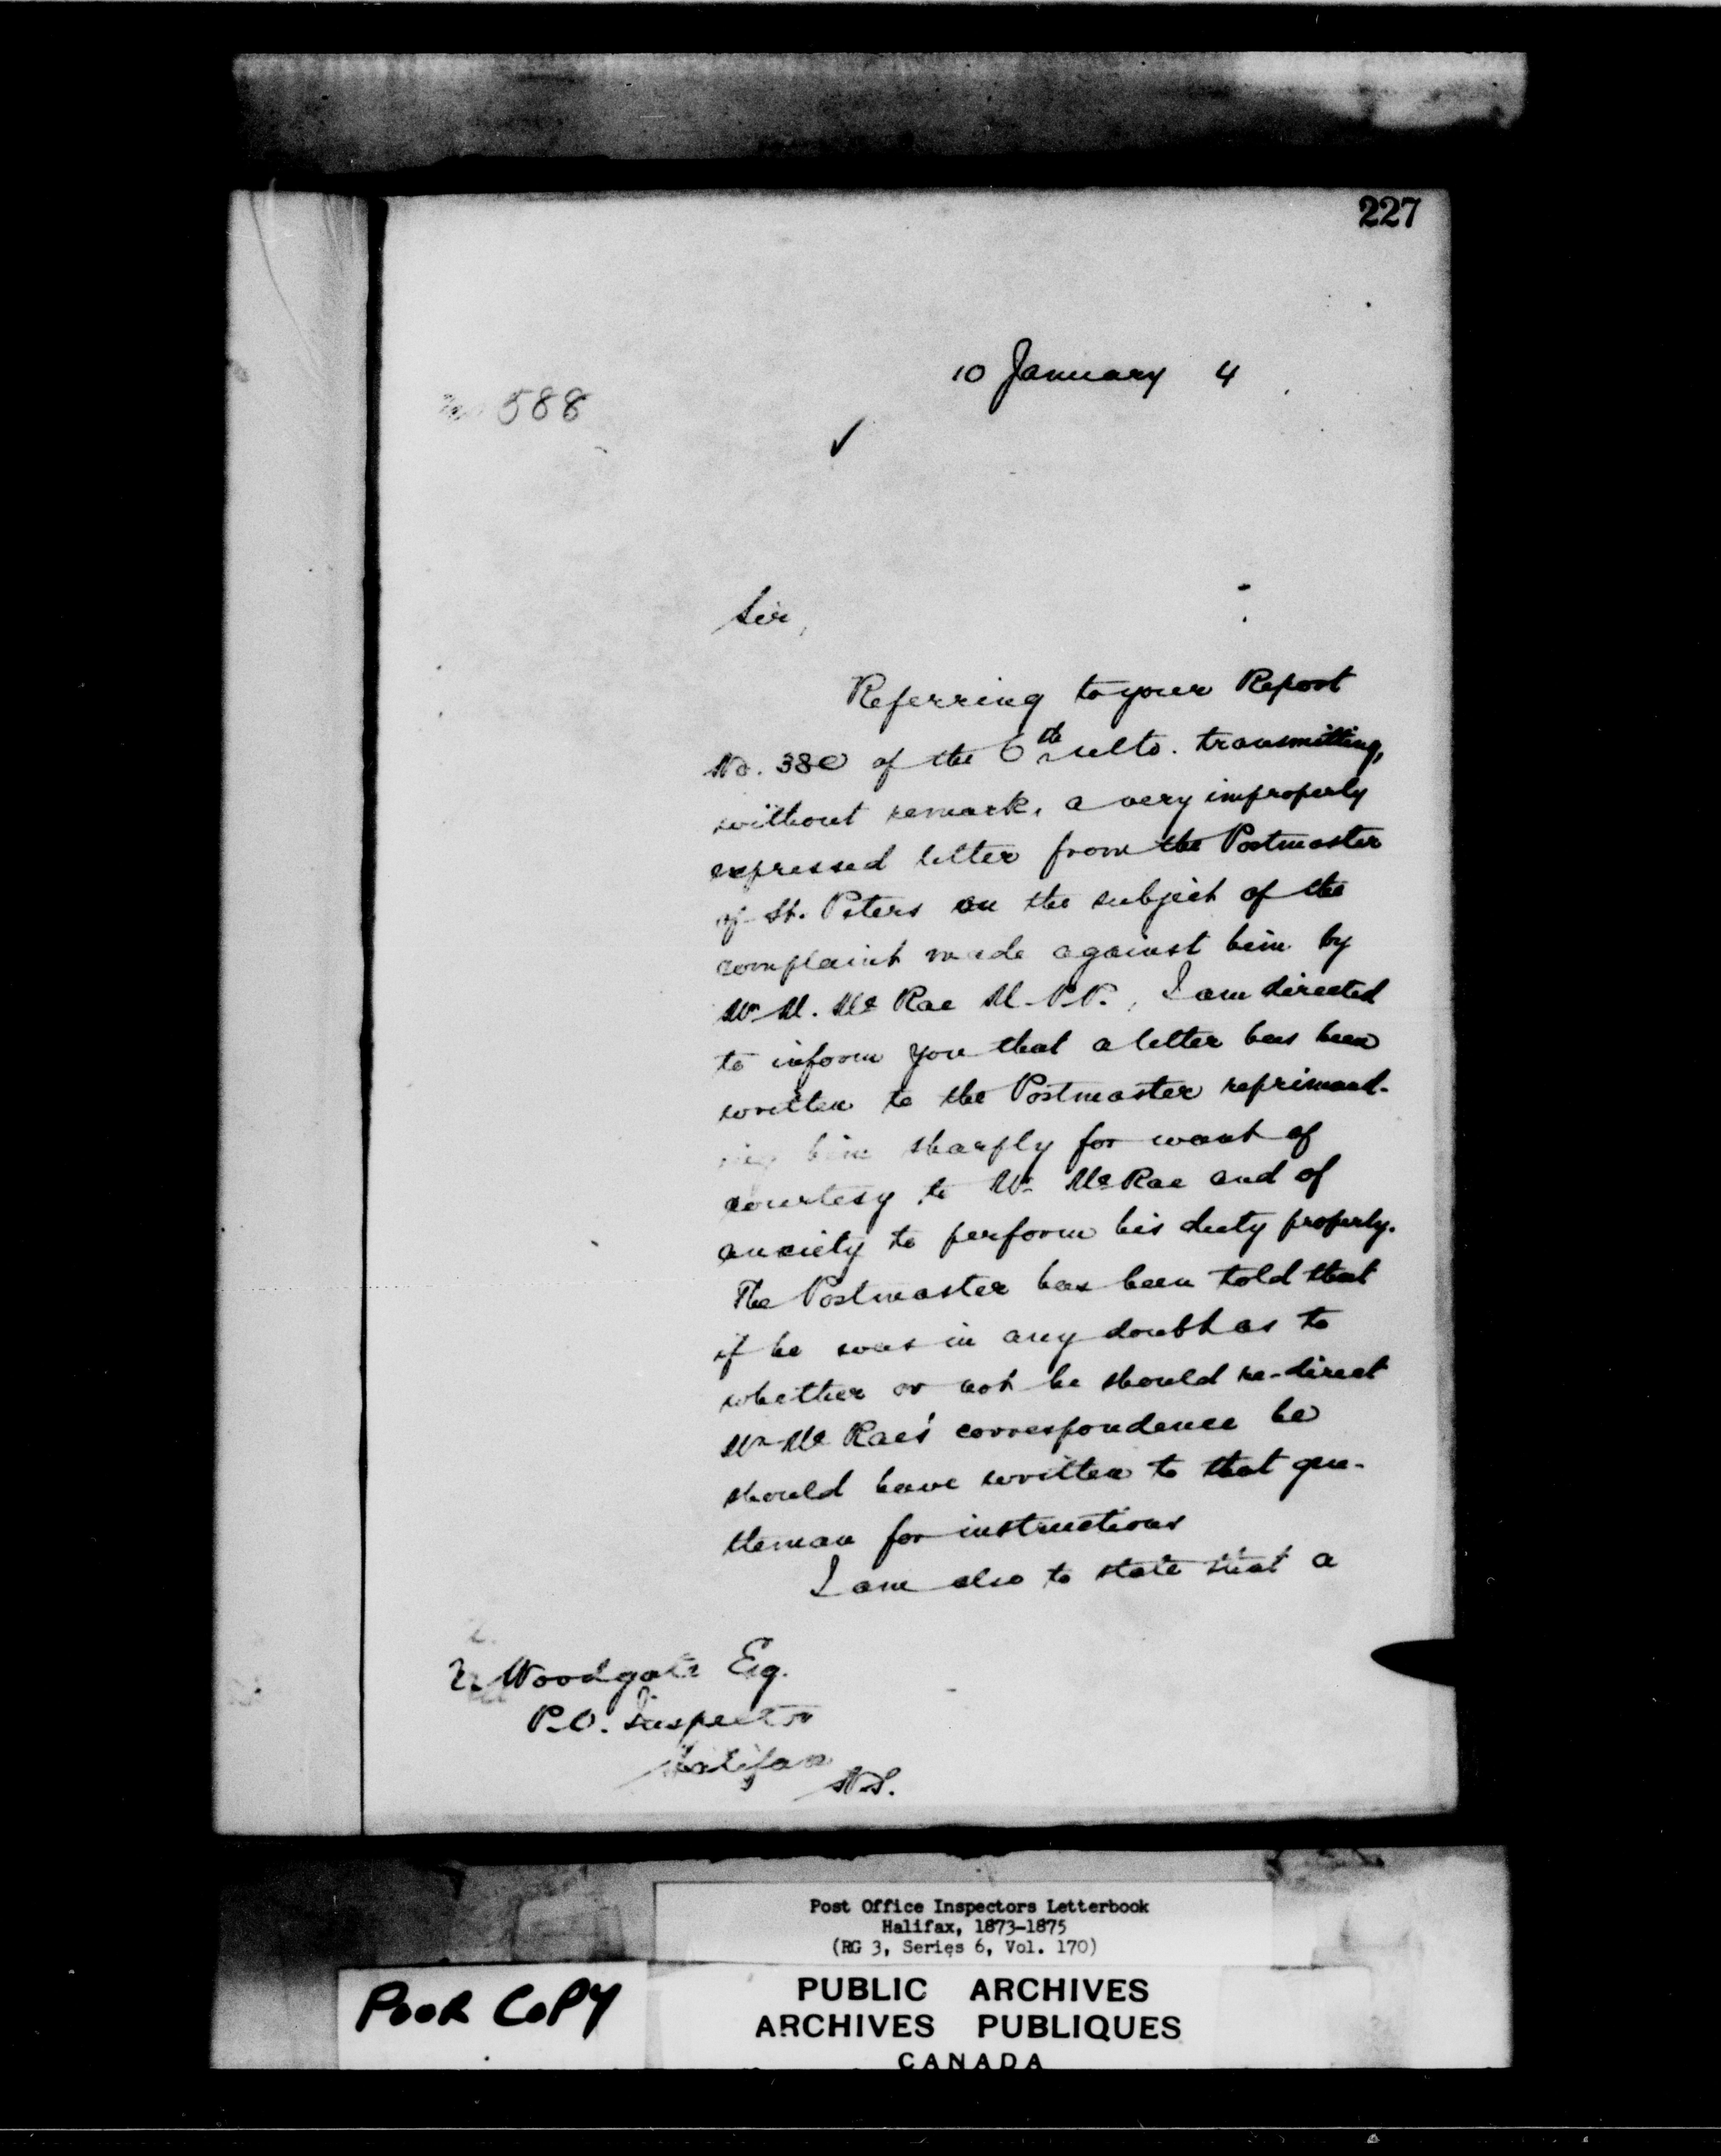 227
10 January 4
No 588
✓
Sir,
Referring to your Report
No. 380 of the 6th ulto. transmitting,
without remark, a very improperly
expressed letter from the Postmaster
of St. Peters on the subject of the
complaint made against him by
Mr. M. McRae M.P.P., I am directed
to inform you that a letter has been
written to the Postmaster reprimand-
ing him sharply for want of
courtesy to Mr McRae and of
anxiety to perform his duty properly.
The Postmaster has been told that
if he was in any doubt as to
whether or not he should re-direct
Mr McRae's correspondence he
should have written to that gen-
tleman for instructions
I am also to state that a
Woodgate Esq.
P.O. Inspector
Halifax
N.S.
Post Office Inspectors Letterbook
Halifax, 1873-1875
(RG 3, Series 6, Vol. 170)
POOR COPY
PUBLIC ARCHIVES
ARCHIVES PUBLIQUES
CANADA